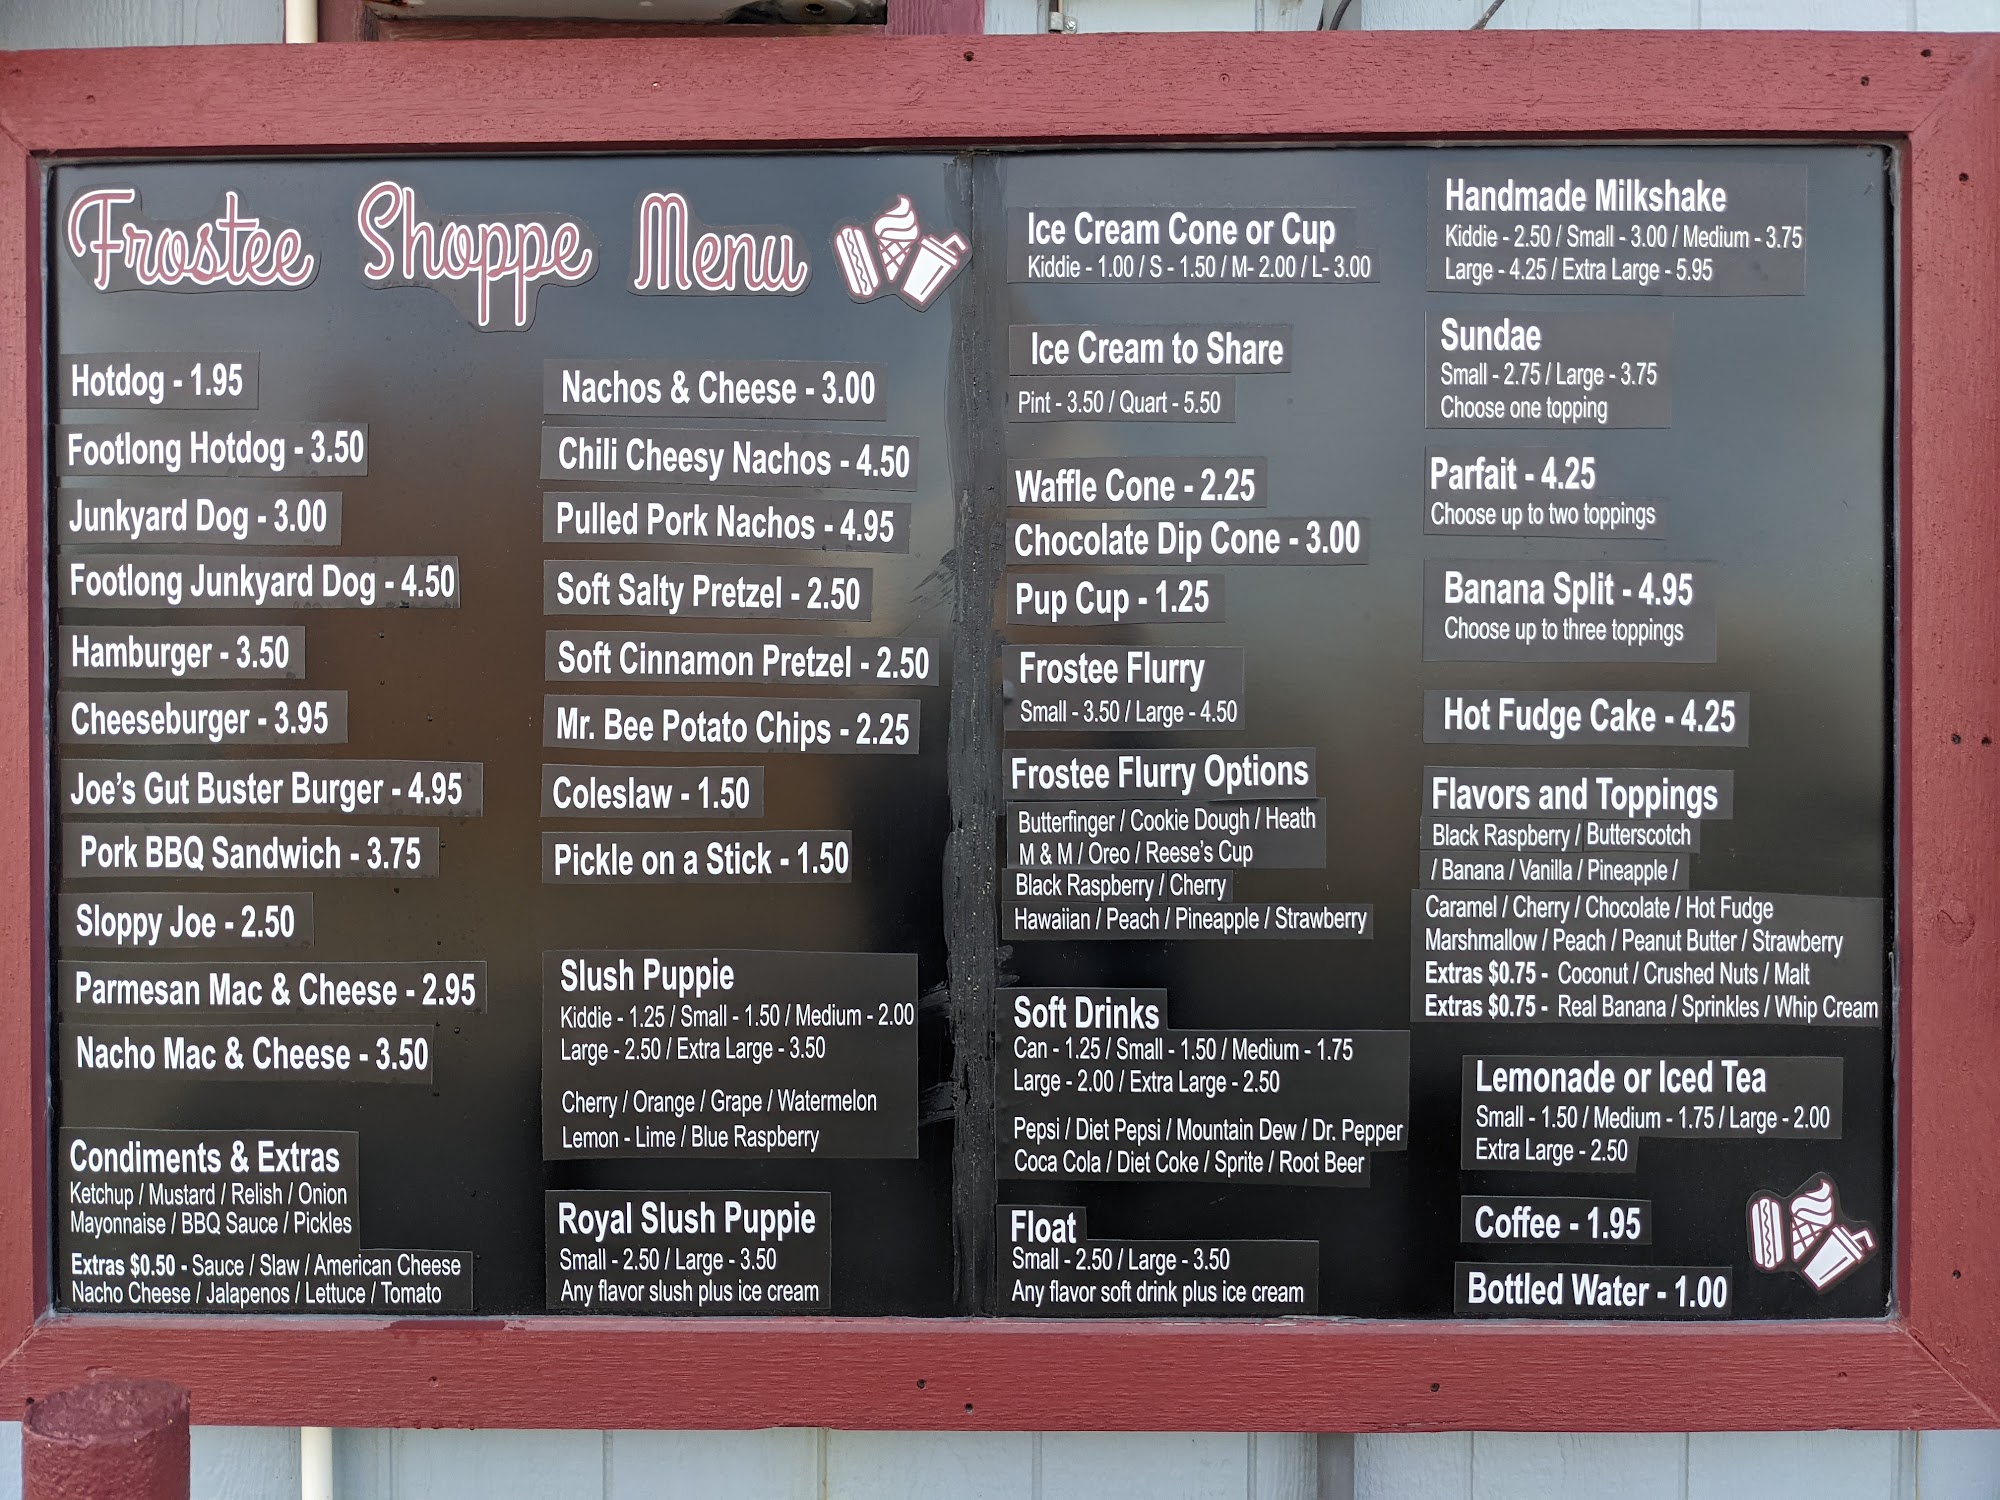 Frostee Shoppe Menu
Hotdog - 1.95
Footlong Hotdog - 3.50
Junkyard Dog - 3.00
Footlong Junkyard Dog - 4.50
Hamburger - 3.50
Cheeseburger - 3.95
Joe's Gut Buster Burger - 4.95
Pork BBQ Sandwich - 3.75
Sloppy Joe - 2.50
Parmesan Mac & Cheese - 2.95
Nacho Mac & Cheese - 3.50
Condiments & Extras
Ketchup / Mustard / Relish / Onion
Mayonnaise / BBQ Sauce / Pickles
Extras $0.50 - Sauce / Slaw / American Cheese
Nacho Cheese / Jalapenos / Lettuce / Tomato
Nachos & Cheese - 3.00
Chili Cheesy Nachos - 4.50
Pulled Pork Nachos - 4.95
Soft Salty Pretzel - 2.50
Soft Cinnamon Pretzel - 2.50
Mr. Bee Potato Chips - 2.25
Coleslaw - 1.50
Pickle on a Stick - 1.50
Slush Puppie
Kiddie - 1.25 / Small - 1.50 / Medium - 2.00
Large - 2.50 / Extra Large - 3.50
Cherry / Orange / Grape / Watermelon
Lemon - Lime / Blue Raspberry
Royal Slush Puppie
Small - 2.50 / Large - 3.50
Any flavor slush plus ice cream
Ice Cream Cone or Cup
Kiddie - 1.00 / S - 1.50 / M- 2.00 / L- 3.00
Ice Cream to Share
Pint - 3.50 / Quart - 5.50
Waffle Cone - 2.25
Chocolate Dip Cone - 3.00
Pup Cup - 1.25
Frostee Flurry
Small - 3.50 / Large - 4.50
Frostee Flurry Options
Butterfinger / Cookie Dough / Heath
M & M / Oreo / Reese's Cup
Black Raspberry / Cherry
Hawaiian / Peach / Pineapple / Strawberry
Soft Drinks
Can - 1.25 / Small - 1.50 / Medium - 1.75
Large - 2.00 / Extra Large - 2.50
Pepsi / Diet Pepsi / Mountain Dew / Dr. Pepper
Coca Cola / Diet Coke / Sprite / Root Beer
Float
Small - 2.50 / Large - 3.50
Any flavor soft drink plus ice cream
Handmade Milkshake
Kiddie - 2.50 / Small - 3.00 / Medium - 3.75
Large - 4.25 / Extra Large - 5.95
Sundae
Small - 2.75 / Large - 3.75
Choose one topping
Parfait - 4.25
Choose up to two toppings
Banana Split - 4.95
Choose up to three toppings
Hot Fudge Cake - 4.25
Flavors and Toppings
Black Raspberry / Butterscotch
/ Banana / Vanilla / Pineapple /
Caramel / Cherry / Chocolate / Hot Fudge
Marshmallow / Peach / Peanut Butter / Strawberry
Extras $0.75 - Coconut / Crushed Nuts / Malt
Extras $0.75 - Real Banana / Sprinkles / Whip Cream
Lemonade or Iced Tea
Small - 1.50 / Medium - 1.75 / Large - 2.00
Extra Large - 2.50
Coffee - 1.95
Bottled Water - 1.00